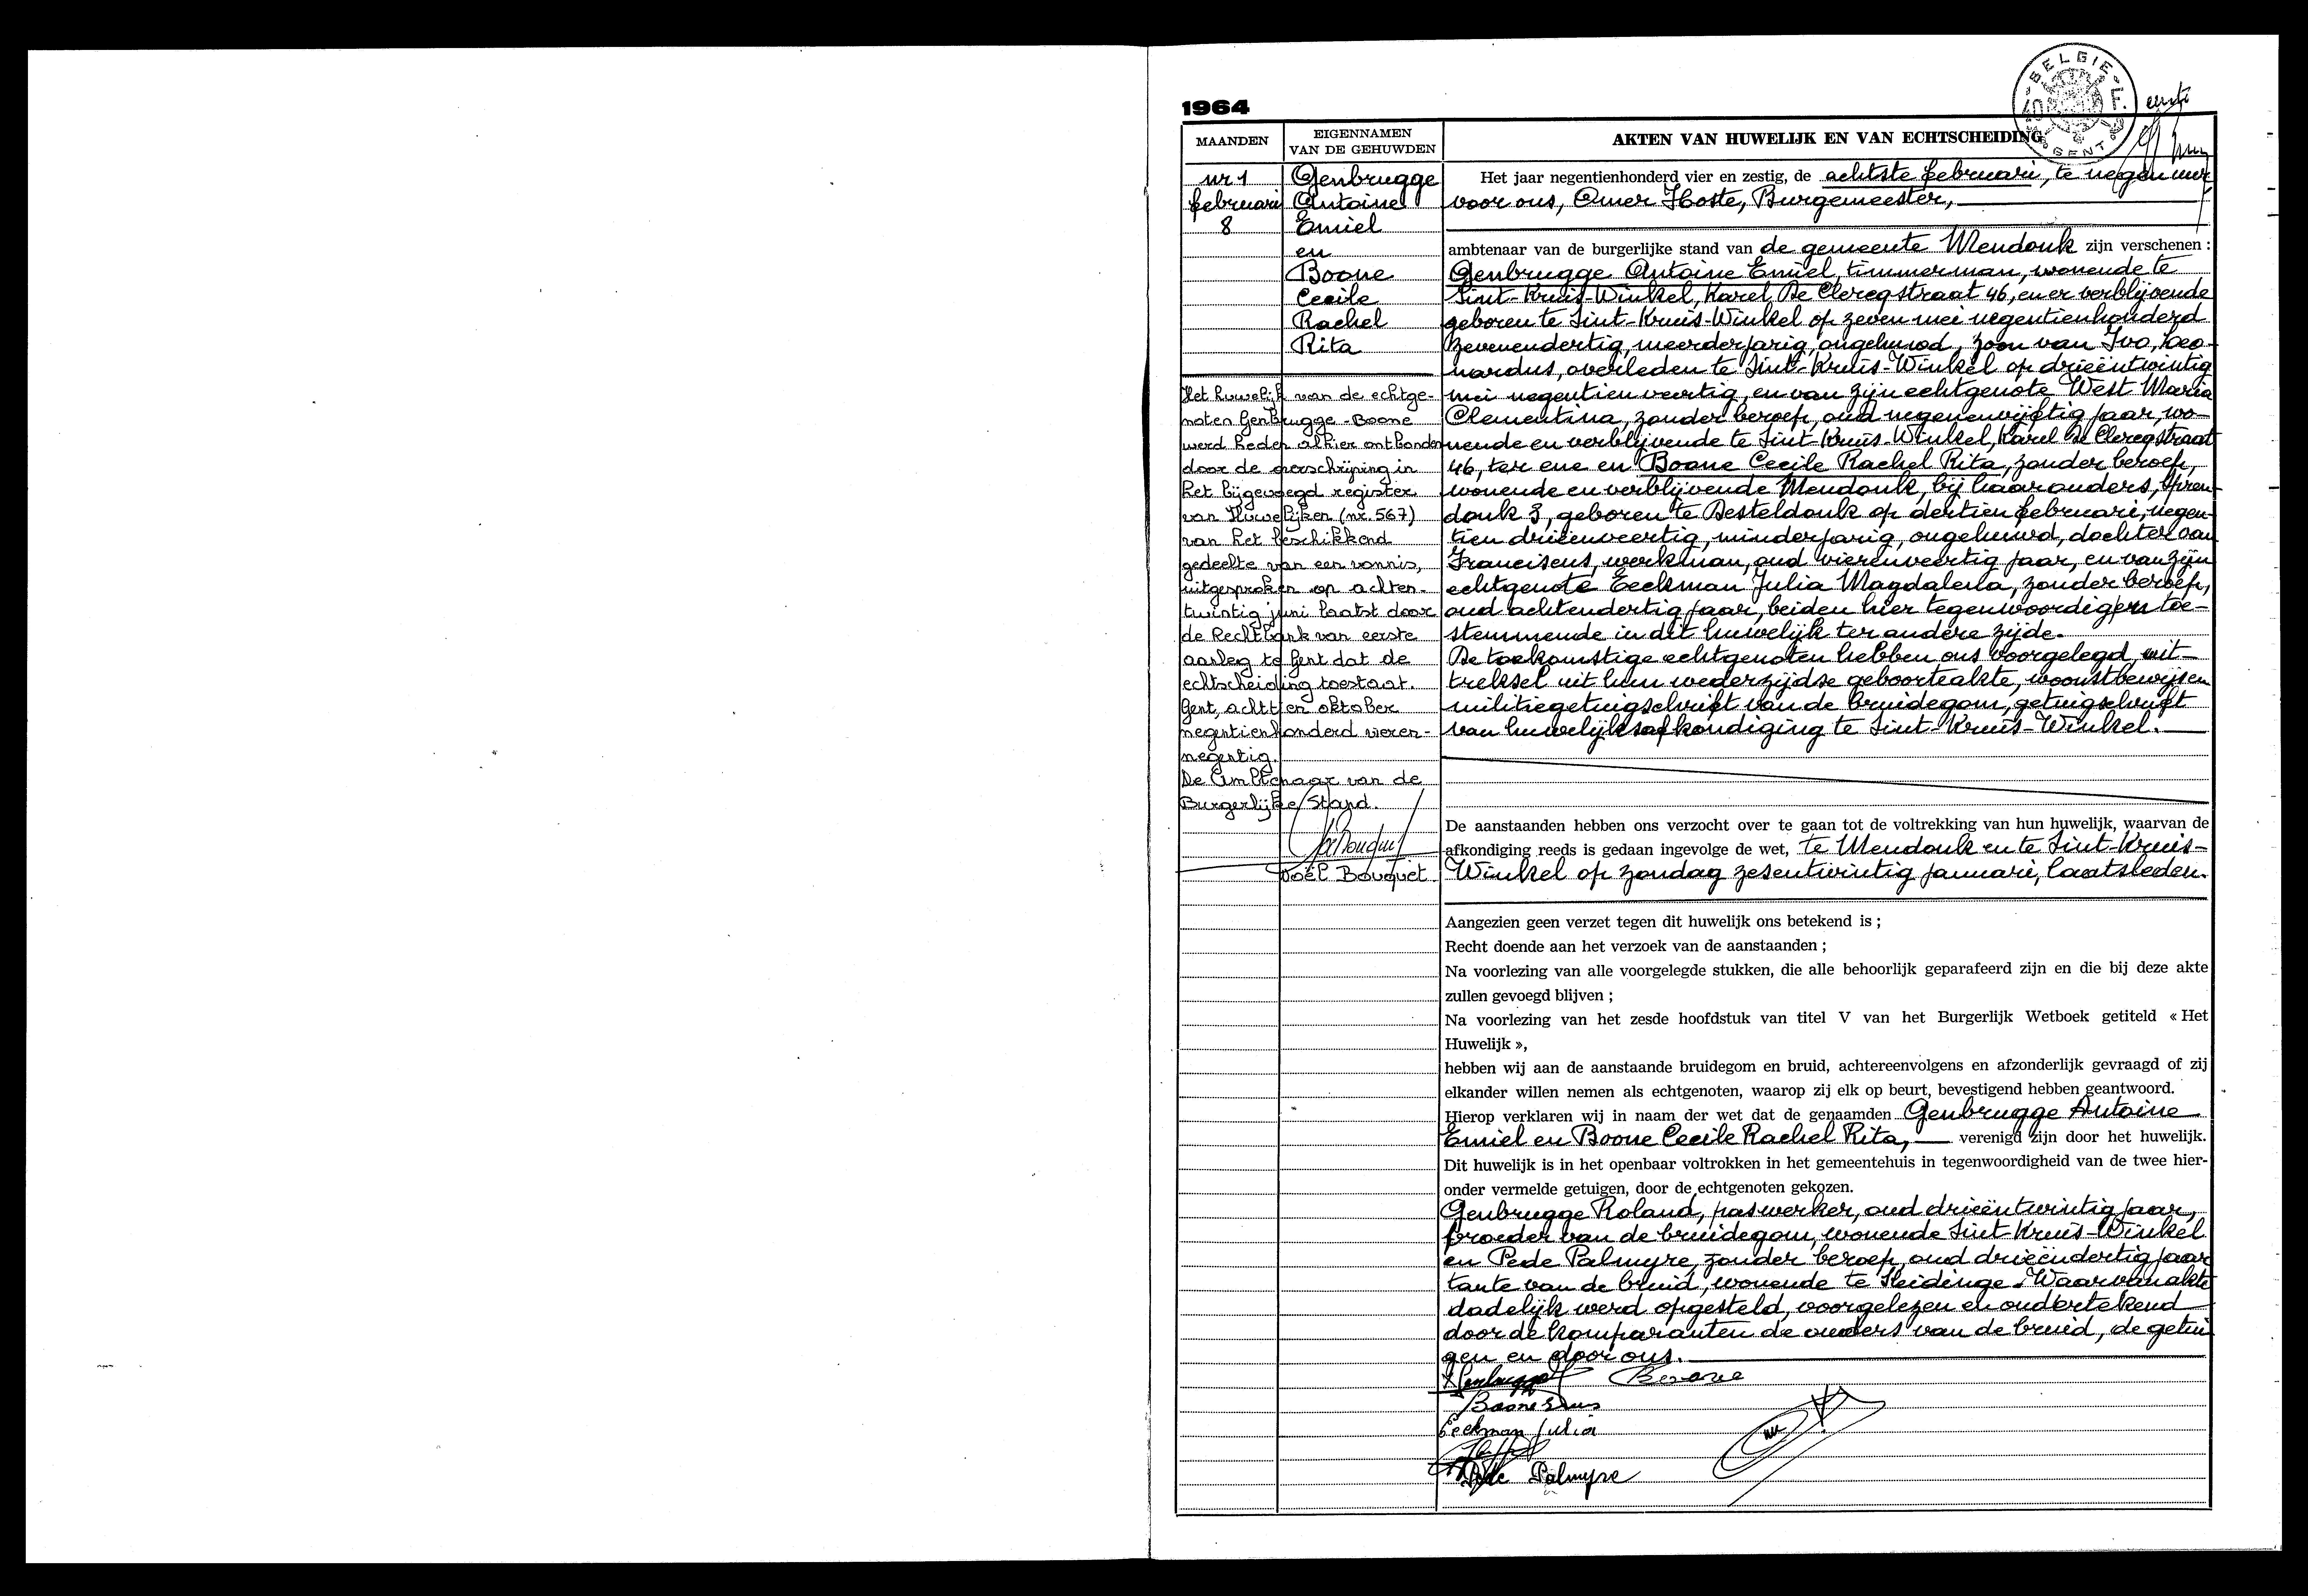 1964
BELGIE
40 F.
GENT
MAANDEN
EIGENNAMEN
VAN DE GEHUWDEN
AKTEN VAN HUWELIJK EN VAN ECHTSCHEIDING
nr 1
februari
8
Genbrugge
Antoine
Emiel
en
Boone
Cecile
Rachel
Rita
Het huwelijk van de echtge-
noten Genbrugge-Boone
werd heden alhier ontbonden
door de overschrijving in
het bijgevoegd register
van Huwelijken (nr. 567)
van het beschikkend
gedeelte van een vonnis,
uitgesproken op achten-
twintig juni laatst door
de Rechtbank van eerste
aanleg te Gent dat de
echtscheiding toestaat.
Gent, achttien oktober
negentienhonderd vieren-
negentig.
De Ambtenaar van de
Burgerlijke Stand.
Joël Bouquet
Het jaar negentienhonderd vier en zestig, de achtste februari, te negen uur
voor ons, Omer Hoste, Burgemeester,
ambtenaar van de burgerlijke stand van de gemeente Mendonk zijn verschenen :
Genbrugge Antoine Emiel, timmerman, wonende te
Sint-Kruis-Winkel, Karel De Clercqstraat 46, en er verblijvende
geboren te Sint-Kruis-Winkel op zeven mei negentienhonderd
zevenendertig, meerderjarig, ongehuwd, zoon van Ivo, Leo-
nardus, overleden te Sint-Kruis-Winkel op drieëntwintig
mei negentien veertig, en van zijn echtgenote West Maria
Clementina, zonder beroep, oud negenenvijftig jaar, wo-
nende en verblijvende te Sint-Kruis-Winkel, Karel De Clercqstraat
46, ter ene en Boone Cecile Rachel Rita, zonder beroep,
wonende en verblijvende Mendonk, bij haar ouders, Spren-
donk 3, geboren te Desteldonk op dertien februari, negen-
tien drieënveertig, minderjarig, ongehuwd, dochter van
Franciscus, werkman, oud vierenveertig jaar, en van zijn
echtgenote Eeckman Julia Magdalena, zonder beroep,
oud achtendertig jaar, beiden hier tegenwoordig en toe-
stemmende in dit huwelijk ter andere zijde.
De toekomstige echtgenoten hebben ons voorgelegd, uit-
treksel uit hun wederzijdse geboorteakte, woonstbewijsen
militiegetuigschrift van de bruidegom, getuigschrift
van huwelijksafkondiging te Sint-Kruis-Winkel.
De aanstaanden hebben ons verzocht over te gaan tot de voltrekking van hun huwelijk, waarvan de
afkondiging reeds is gedaan ingevolge de wet, te Mendonk en te Sint-Kruis-
Winkel op zondag zesentwintig januari, laatsleden.
Aangezien geen verzet tegen dit huwelijk ons betekend is ;
Recht doende aan het verzoek van de aanstaanden ;
Na voorlezing van alle voorgelegde stukken, die alle behoorlijk geparafeerd zijn en die bij deze akte
zullen gevoegd blijven ;
Na voorlezing van het zesde hoofdstuk van titel V van het Burgerlijk Wetboek getiteld « Het
Huwelijk »,
hebben wij aan de aanstaande bruidegom en bruid, achtereenvolgens en afzonderlijk gevraagd of zij
elkander willen nemen als echtgenoten, waarop zij elk op beurt, bevestigend hebben geantwoord.
Hierop verklaren wij in naam der wet dat de genaamden Genbrugge Antoine
Emiel en Boone Cecile Rachel Rita, verenigd zijn door het huwelijk.
Dit huwelijk is in het openbaar voltrokken in het gemeentehuis in tegenwoordigheid van de twee hier-
onder vermelde getuigen, door de echtgenoten gekozen.
Genbrugge Roland, paswerker, oud drieëntwintig jaar,
broeder van de bruidegom, wonende Sint-Kruis-Winkel
en Pede Palmyre, zonder beroep, oud drieëndertig jaar
tante van de bruid, wonende te Sleidinge. Waarvan akte
dadelijk werd opgesteld, voorgelezen en ondertekend
door de komparanten de ouders van de bruid, de getui
gen en door ons.
Genbrugge
Boone
Eeckman Julia
Pede Palmyre